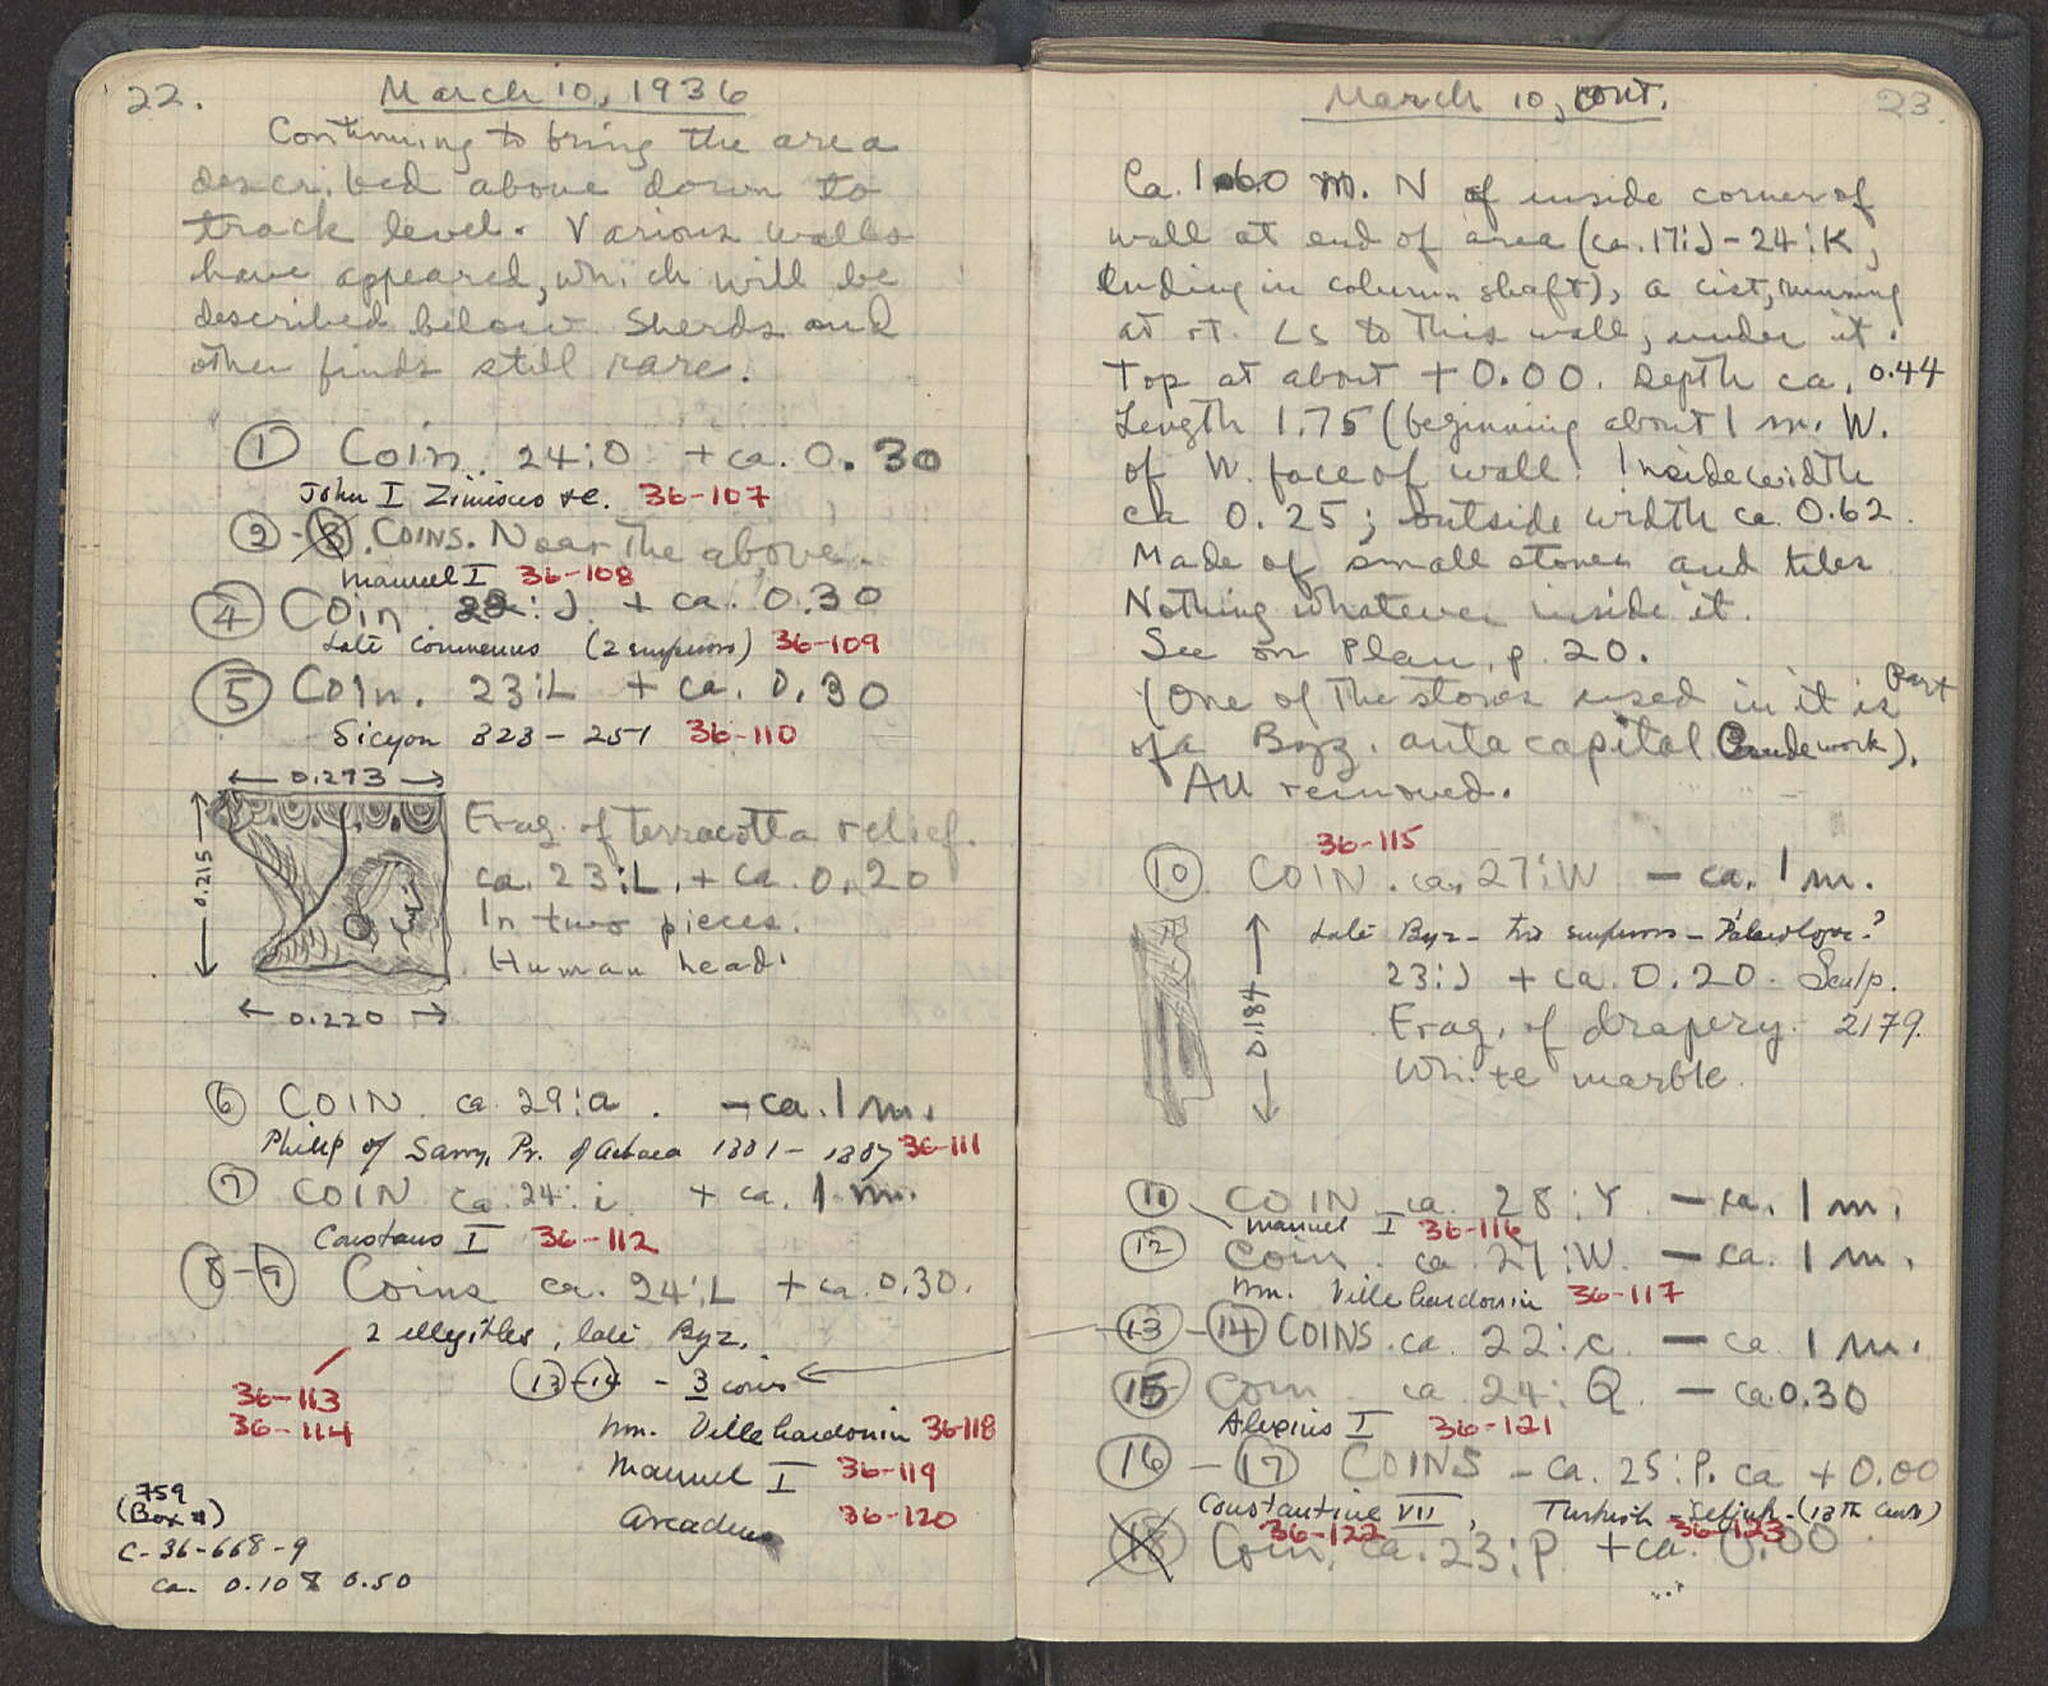 22.
March 10, 1936
Continuing to bring the area
described above down to
track level. Various walls
have appeared, which will be
described below. Sherds and
other finds still rare.
1 Coin. 24:O + ca. 0.30
John I Zimisces &c. 36-107
2 - 3. COINS. Near the above.
Manuel I 36-108
4 Coin. 22:J + ca. 0.30
Late Comnenus (2 emperors) 36-109
5 Coin. 23:L + ca. 0.30
Sicyon 323-251 36-110
0.273
0.215
0.220
Frag. of terracotta relief.
ca. 23:L, + ca. 0.20
In two pieces.
Human head.
6 COIN ca 29:a. - ca. 1 m.
Philip of Savoy, Pr. of Achaea 1301-1307 36-111
7 COIN ca. 24:i + ca. 1 m.
Constans I 36-112
8-9 Coins ca. 24:L + ca. 0.30.
2 illegibles, late Byz.
36-113
36-114
13-14 - 3 coins
Wm. Villehardouin 36-118
Manuel I 36-119
Arcadius 36-120
759
(Box 1)
C-36-668-9
ca. 0.10 0.50
March 10, cont.
23.
Ca. 1.60 m. N of inside corner of
wall at end of area (ca. 17:J-24:K,
ending in column shaft), a cist, running
at rt. Ls to this wall, under it.
Top at about +0.00. Depth ca. 0.44
Length 1.75 (beginning about 1 m. W.
of W. face of wall. Inside width
ca 0.25; outside width ca. 0.62.
Made of small stones and tiles
Nothing whatever inside it.
See on Plan, p. 20.
(One of the stones used in it is part
of a Byz. anta capital Crude work).
All removed.
36-115
10 COIN. ca. 27:W - ca. 1 m.
Late Byz - two emperors - Palaeologue?
0.184
23:J + ca. 0.20. Sculp.
Frag. of drapery. 2179.
White marble.
11 COIN ca. 28:Y. - ca. 1 m.
Manuel I 36-116
12 Coin. ca. 27:W. - ca. 1 m.
Wm. Villehardouin 36-117
13 - 14 COINS. ca. 22:c. - ca 1 m.
15 Coin ca 24:Q. - ca 0.30
Alexius I 36-121
16 - 17 COINS - ca. 25:P. ca + 0.00
Constantine VII, Turkish - Seljuk - (13th Cent)
36-122 36-123
18 Coin. ca. 23:P + ca. 0.00